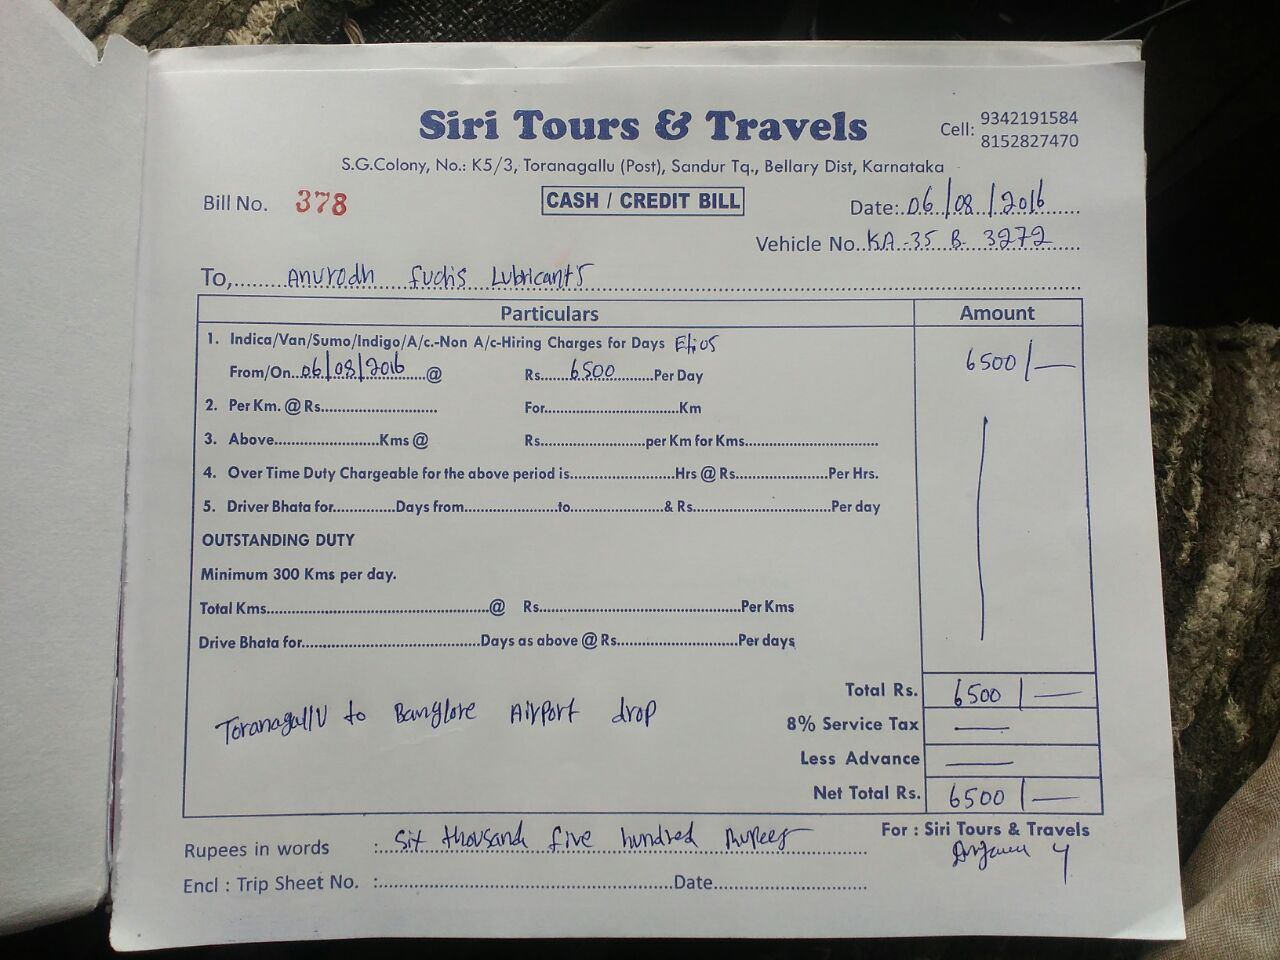 Siri Tours & Travels
Cell: 9342191584
8152827470
S.G.Colony, No.: K5/3, Toranagallu (Post), Sandur Tq., Bellary Dist, Karnataka
Bill No. 378 CASH / CREDIT BILL Date:.06/08/2016
Vehicle No..KA-35 B 3272
To,......Anurodh fuchs Lubricants
Particulars Amount
1. Indica/Van/Sumo/Indigo/A/c.-Non A/c-Hiring Charges for Days Etios
From/On...06/08/2016....@ Rs.......6500.......Per Day 6500/—
2. Per Km. @ Rs............................ For................................Km
3. Above.........................Kms @ Rs.........................per Km for Kms................................
4. Over Time Duty Chargeable for the above period is.........................Hrs @ Rs......................Per Hrs.
5. Driver Bhata for...............Days from......................to......................& Rs.................................Per day
OUTSTANDING DUTY
Minimum 300 Kms per day.
Total Kms.....................................................@ Rs................................................Per Kms
Drive Bhata for...........................................Days as above @ Rs.............................Per days
Total Rs. 6500/—
Toranagallu to Banglore Airport drop
8% Service Tax —
Less Advance —
Net Total Rs. 6500/—
For : Siri Tours & Travels
Rupees in words :....Sit thousand five hundred Rupees
Encl : Trip Sheet No. :.......................................................................Date.....................................